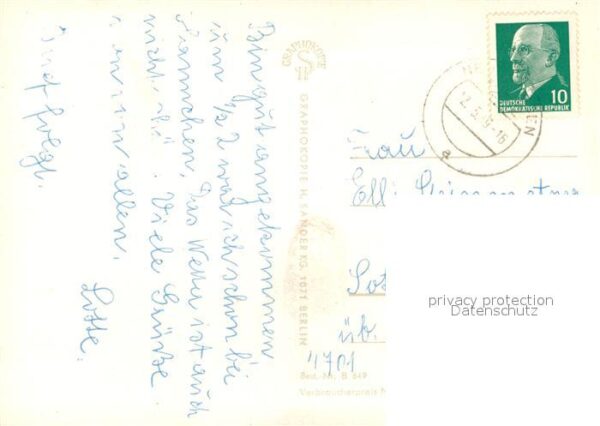 Bin gut angekommen
um ½ 2 war ich schon bei
Hannchen. Das Wetter ist auch
nicht Viele Grüße
an allen.
Lotte.
Brief folgt.
GRAPHOKOPIE
GRAPHOKOPIE H. SANDER KG. 1071 BERLIN
Best.-Nr. B 649
Verbraucherpreis M
DEUTSCHE
DEMOKRATISCHE REPUBLIK
10
Frau
Elli
üb.
4701
privacy protection
Datenschutz